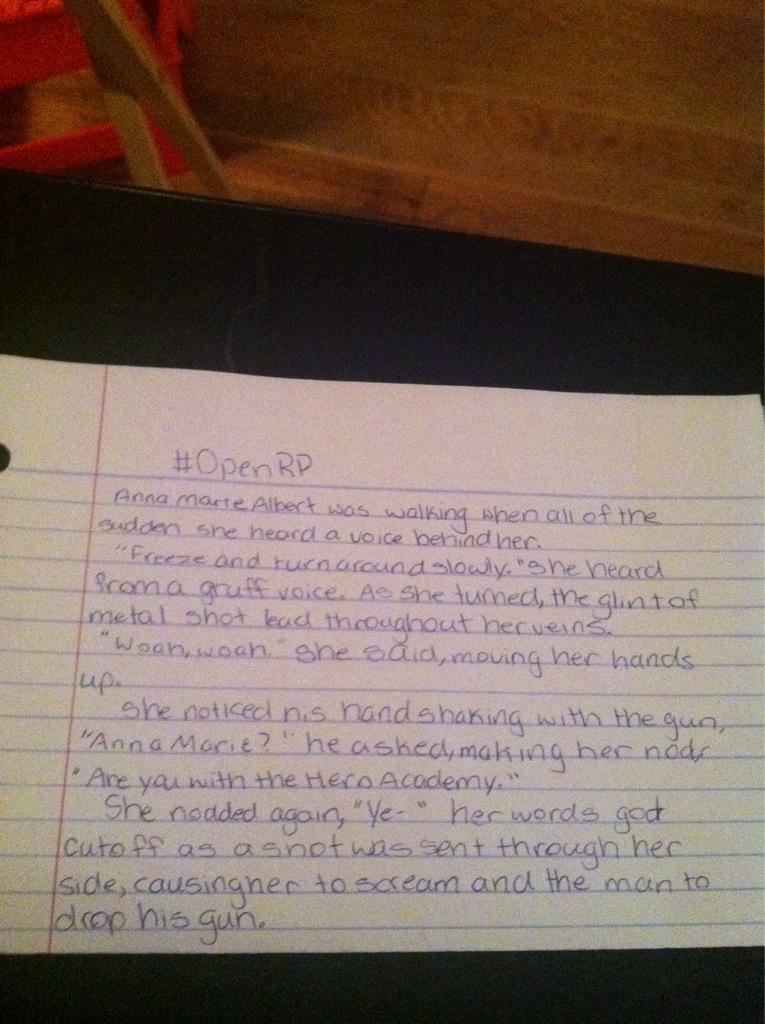 #OpenRP
Anna marie Albert was walking when all of the
sudden she heard a voice behind her.
"Freeze and turn around slowly." she heard
from a gruff voice. As she turned, the glint of
metal shot lead throughout her veins.
"Woah, woah." she said, moving her hands
up.
she noticed his hand shaking with the gun,
"Anna Marie?" he asked, making her nod,
"Are you with the Hero Academy."
She nodded again, "Ye-" her words got
cut off as a shot was sent through her
side, causing her to scream and the man to
drop his gun.